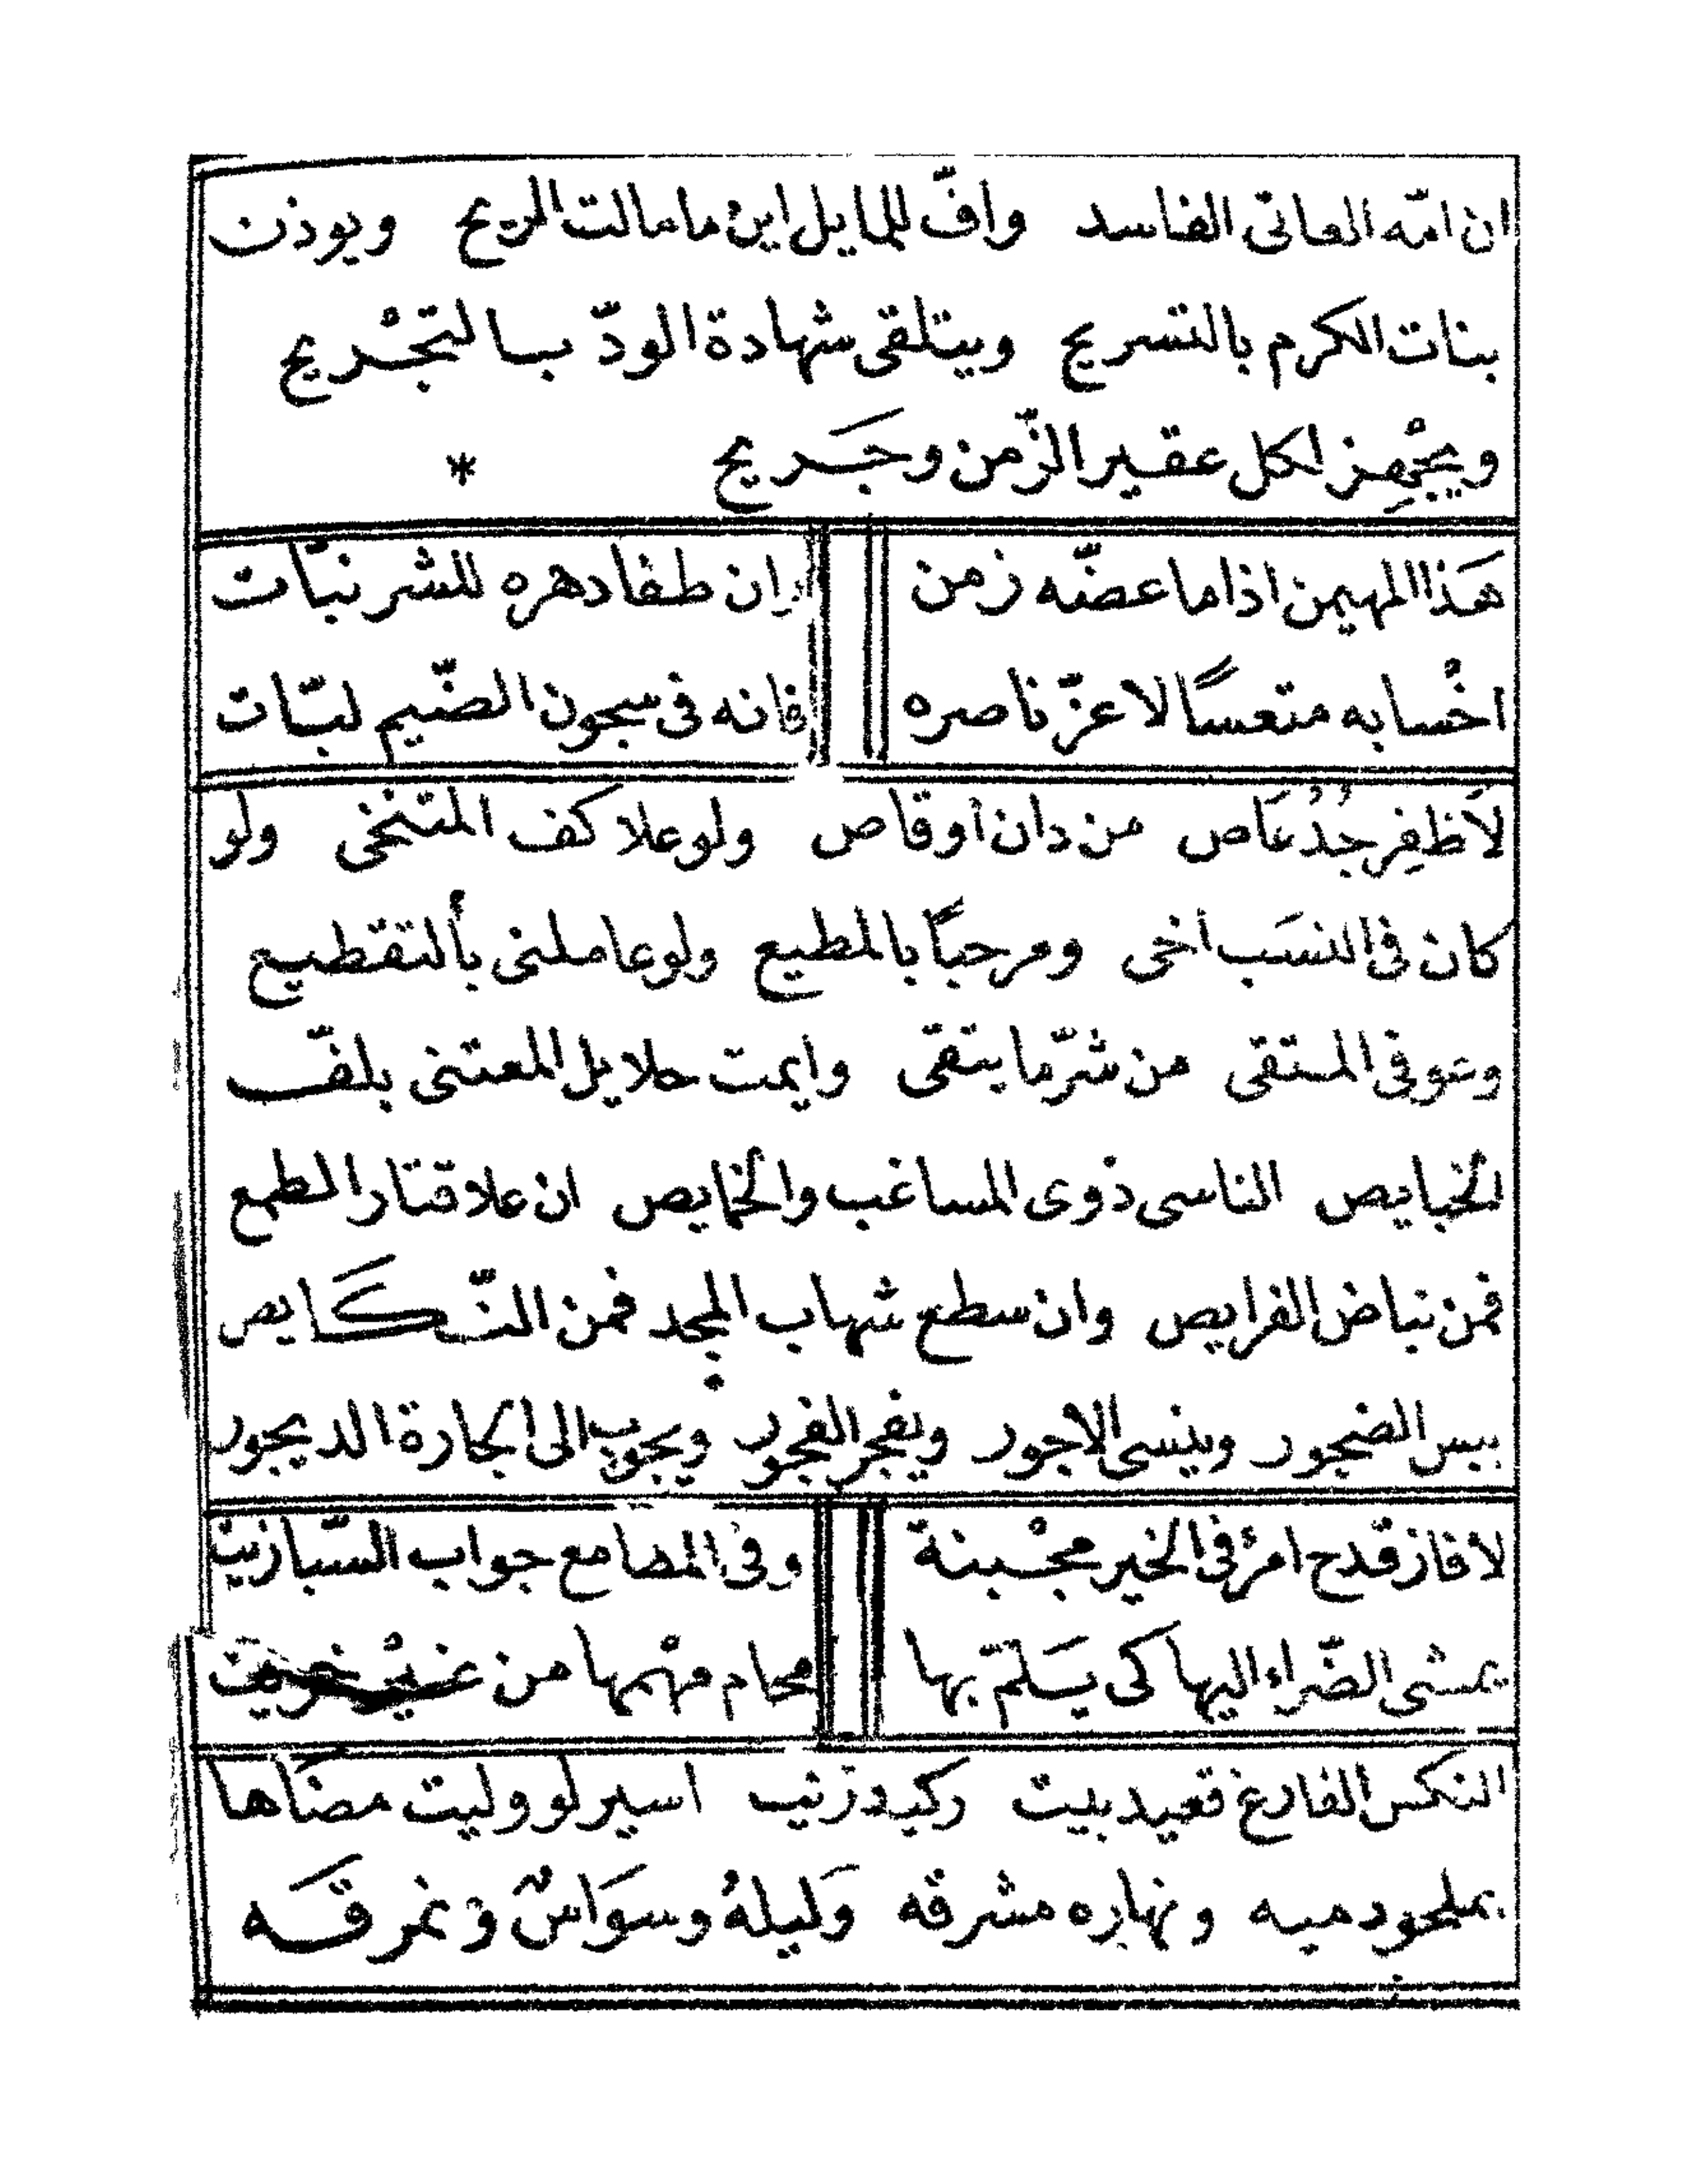 ان امّه العاتى الفاسد وافّ للمايل اين ما مالت الريح ويوذن
بنات الكرم بالتسريح ويتلقى شهادة الودّ بالتجْريح
ويجْهِز لكل عقير الزّمن وجَريح *
هَذا المهيمن اذا ما عضّه زمن وان طغا دهره للشر نبّات
اخْسا به متعسًا لا عزّ ناصره فانه فى سجون الضّيم لبّات
لَاظفِر جُدْعَاص من دان أو قاص ولو علا كف المتنخى ولو
كان فى النسَب أخى ومرحبًا بالمطيع ولو عاملنى بألتقطيع
وعوفى المتقى من شرّ ما يتقى وايمت حلايل المعتنى بلفّ
الخبايص الناسى ذوى المساغب والخمايص ان علا قتار الطمع
فمن نباض الفرايص وان سطع شهاب المجد فمن النّكَايص
ببس الضجور وينسى الاجور ويفجر الفجور ويجوب الى الجارة الديجور
لا فاز قدح امرئ فى الخير مجْبنة وفى المضامع جواب السّبازيت
يمشى الضّراء اليها كى يَسَلمّ بها محام مهْمها من غيْر خريت
النكس الفارغ قعيد بيت ركيد زئيب اسير لو وليت مضَاها
بمليحود هيه ونهاره مشرقه وَليلهُ وسوَاسٌ ونمرقَه